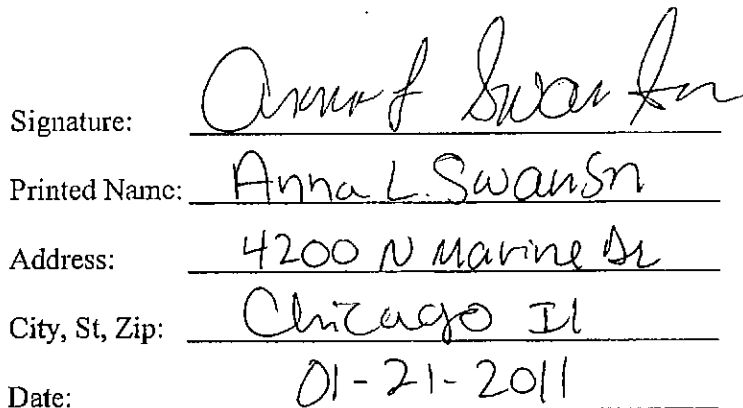 Signature: Anna L Swanson
Printed Name: Anna L. Swansn
Address: 4200 N Marine Dr
City, St, Zip: Chicago Il
Date: 01-21-2011